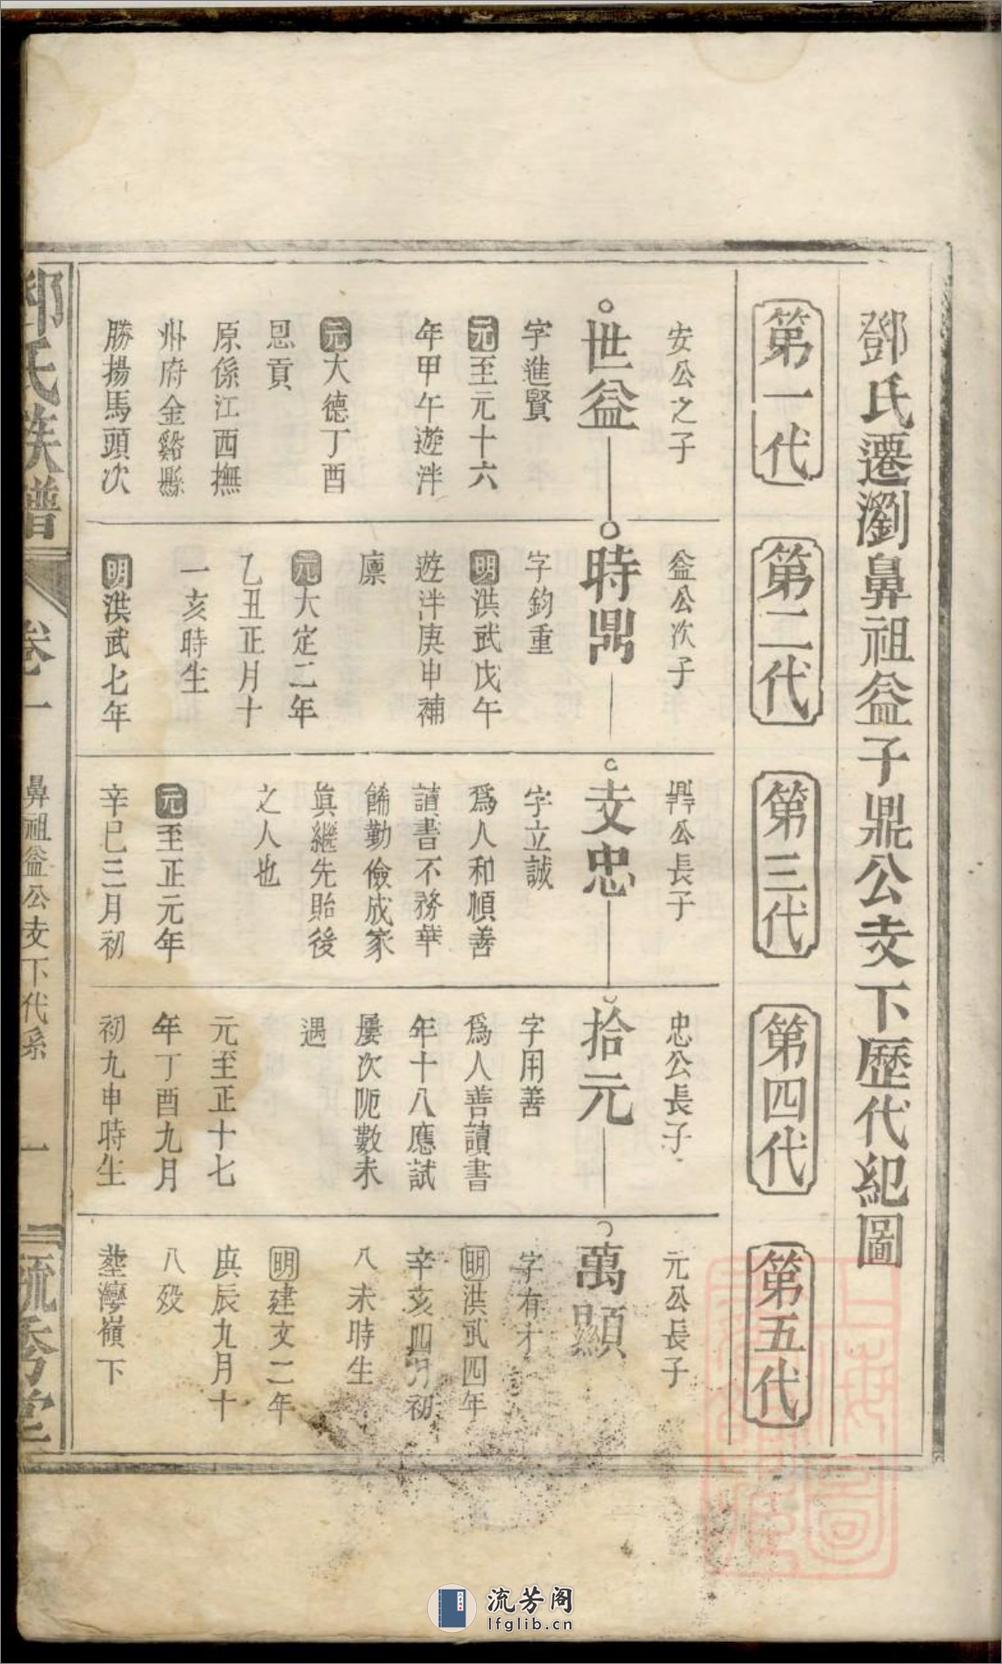 鄧氏遷瀏鼻祖益子鼎公支下歷代紀圖
第一代
第二代
第三代
第四代
第五代
安公之子
世益
字進賢
元至元十六
年甲午遊泮
元大德丁酉
恩貢
原係江西撫
州府金谿縣
勝揚馬頭次
益公次子
時鼎
字鈞重
明洪武戊午
遊泮庚申補
廪
元大定二年
乙丑正月十
一亥時生
明洪武七年
鼎公長子
支忠
字立誠
爲人和順善
讀書不務華
餙勤儉成家
眞繼先貽後
之人也
元至正元年
辛巳三月初
忠公長子
拾元
字用善
爲人善讀書
年十八應試
屢次阨數未
遇
元至正十七
年丁酉九月
初九申時生
元公長子
萬顯
字有才
明洪武四年
辛亥四月初
八未時生
明建文二年
庚辰九月十
八殁
塟灣嶺下
鄧氏族譜
卷一
鼻祖益公支下代系
一
毓秀堂
流芳阁
lfglib.cn